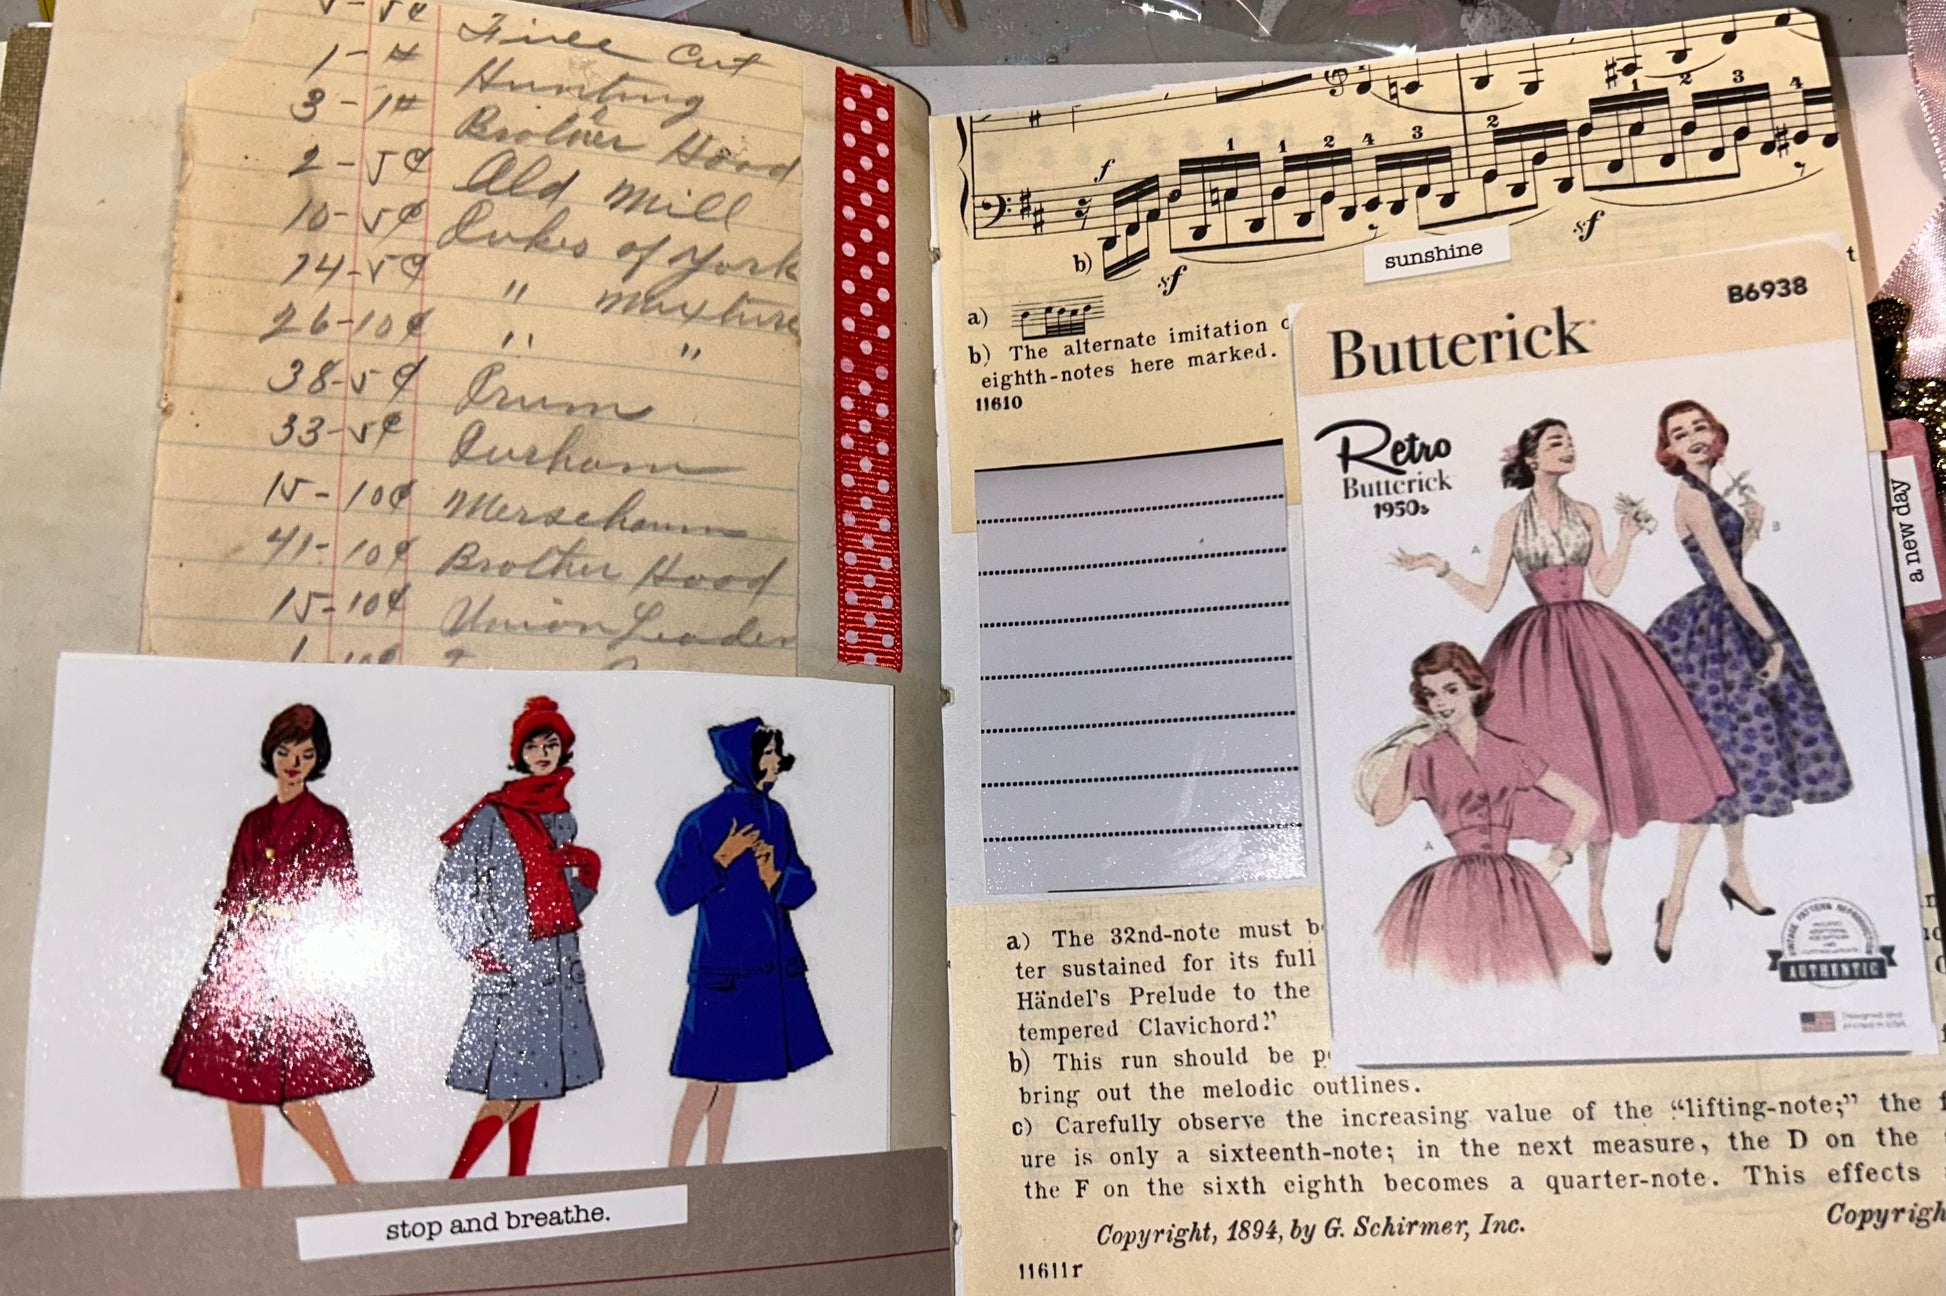 5-5¢ Fine Cut
1-# Hunting
3-1# Brother Hood
2-5¢ Old Mill
10-5¢ Dukes of York
74-5¢ " Mixture
26-10¢ " "
38-5¢ Drum
33-5¢ Durham
15-10¢ Merschaum
41-10¢ Brother Hood
15-10¢ Union Leader
stop and breathe.
f
1 1 2 4 3 2 1 2 3 4
b) sf sf
sunshine
a)
b) The alternate imitation
eighth-notes here marked.
11610
Butterick
B6938
Retro
Butterick
1950s
A
B
A
AUTHENTIC
Designed and
printed in USA
a new day
a) The 32nd-note must b
ter sustained for its full
Händel's Prelude to the
tempered Clavichord."
b) This run should be p
bring out the melodic outlines.
c) Carefully observe the increasing value of the "lifting-note;" the f
ure is only a sixteenth-note; in the next measure, the D on the
the F on the sixth eighth becomes a quarter-note. This effects
Copyright, 1894, by G. Schirmer, Inc.
Copyrigh
11611r